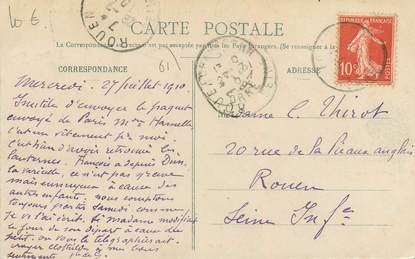 10 €
CARTE POSTALE
La Correspondance au recto n'est pas acceptée par tous les Pays Étrangers. (Se renseigner à la
CORRESPONDANCE
61
ADRESSE
ROUEN
RÉPUBLIQUE FRANÇAISE
10c
POSTES
Mercredi 27 juillet 1910.
Inutile d'envoyer le paquet
envoyé de Paris Mme
c'était un vêtement pr moi.
retrouvé les
lanternes. François a depuis Dim.
la varicelle, ce n'est pas grave
mais ennuyeux à cause des
autres enfants, nous comptons
toujours partir Samedi comme
je vs l'ai écrit. Si madame modifiait
le jour de son départ à cause du
petit, on vous le télégraphierait.
à mes bons
sentiments
Madame C. Thirot
20 rue de la
Rouen
Seine Infre